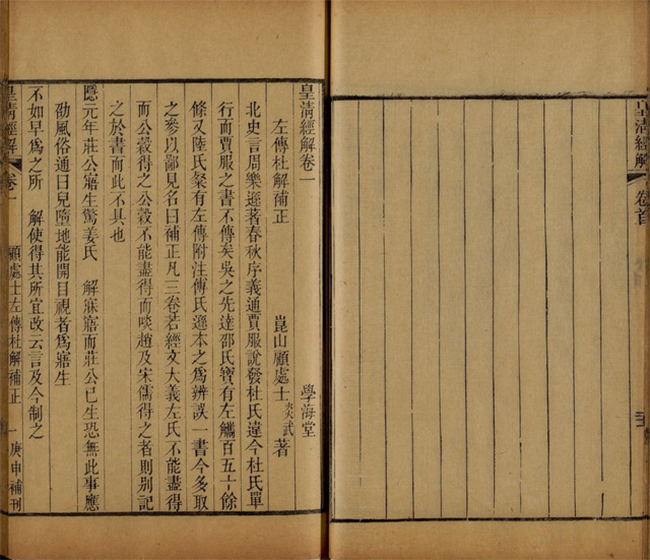 皇清經解
卷首
皇清經解卷一
學海堂
左傳杜解補正
崑山顧處士炎武著
北史言周樂遜著春秋序義通賈服說發杜氏違今杜氏單
行而賈服之書不傳矣吳之先達邵氏寶有左觿百五十餘
條又陸氏粲有左傳附注傅氏遜本之爲辨誤一書今多取
之參以鄙見名曰補正凡三卷若經文大義左氏不能盡得
而公穀得之公穀不能盡得而啖趙及宋儒得之者則別記
之於書而此不具也
隱元年莊公寤生驚姜氏　解寐寤而莊公已生恐無此事應
劭風俗通曰兒墮地能開目視者爲寤生
不如早爲之所　解使得其所宜改云言及今制之
皇清經解
卷一
顧處士左傳杜解補正
一
庚申補刊